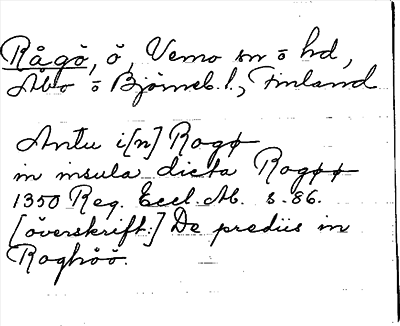 Rågö, ö, Vemo sn o hd,
Åbo o Björneb. l., Finland
Antu i[n] Rogø
in insula dicta Rogøø
1350 Reg. Eccl. Ab. s. 86.
[överskrift:] De prediis in
Roghöö.